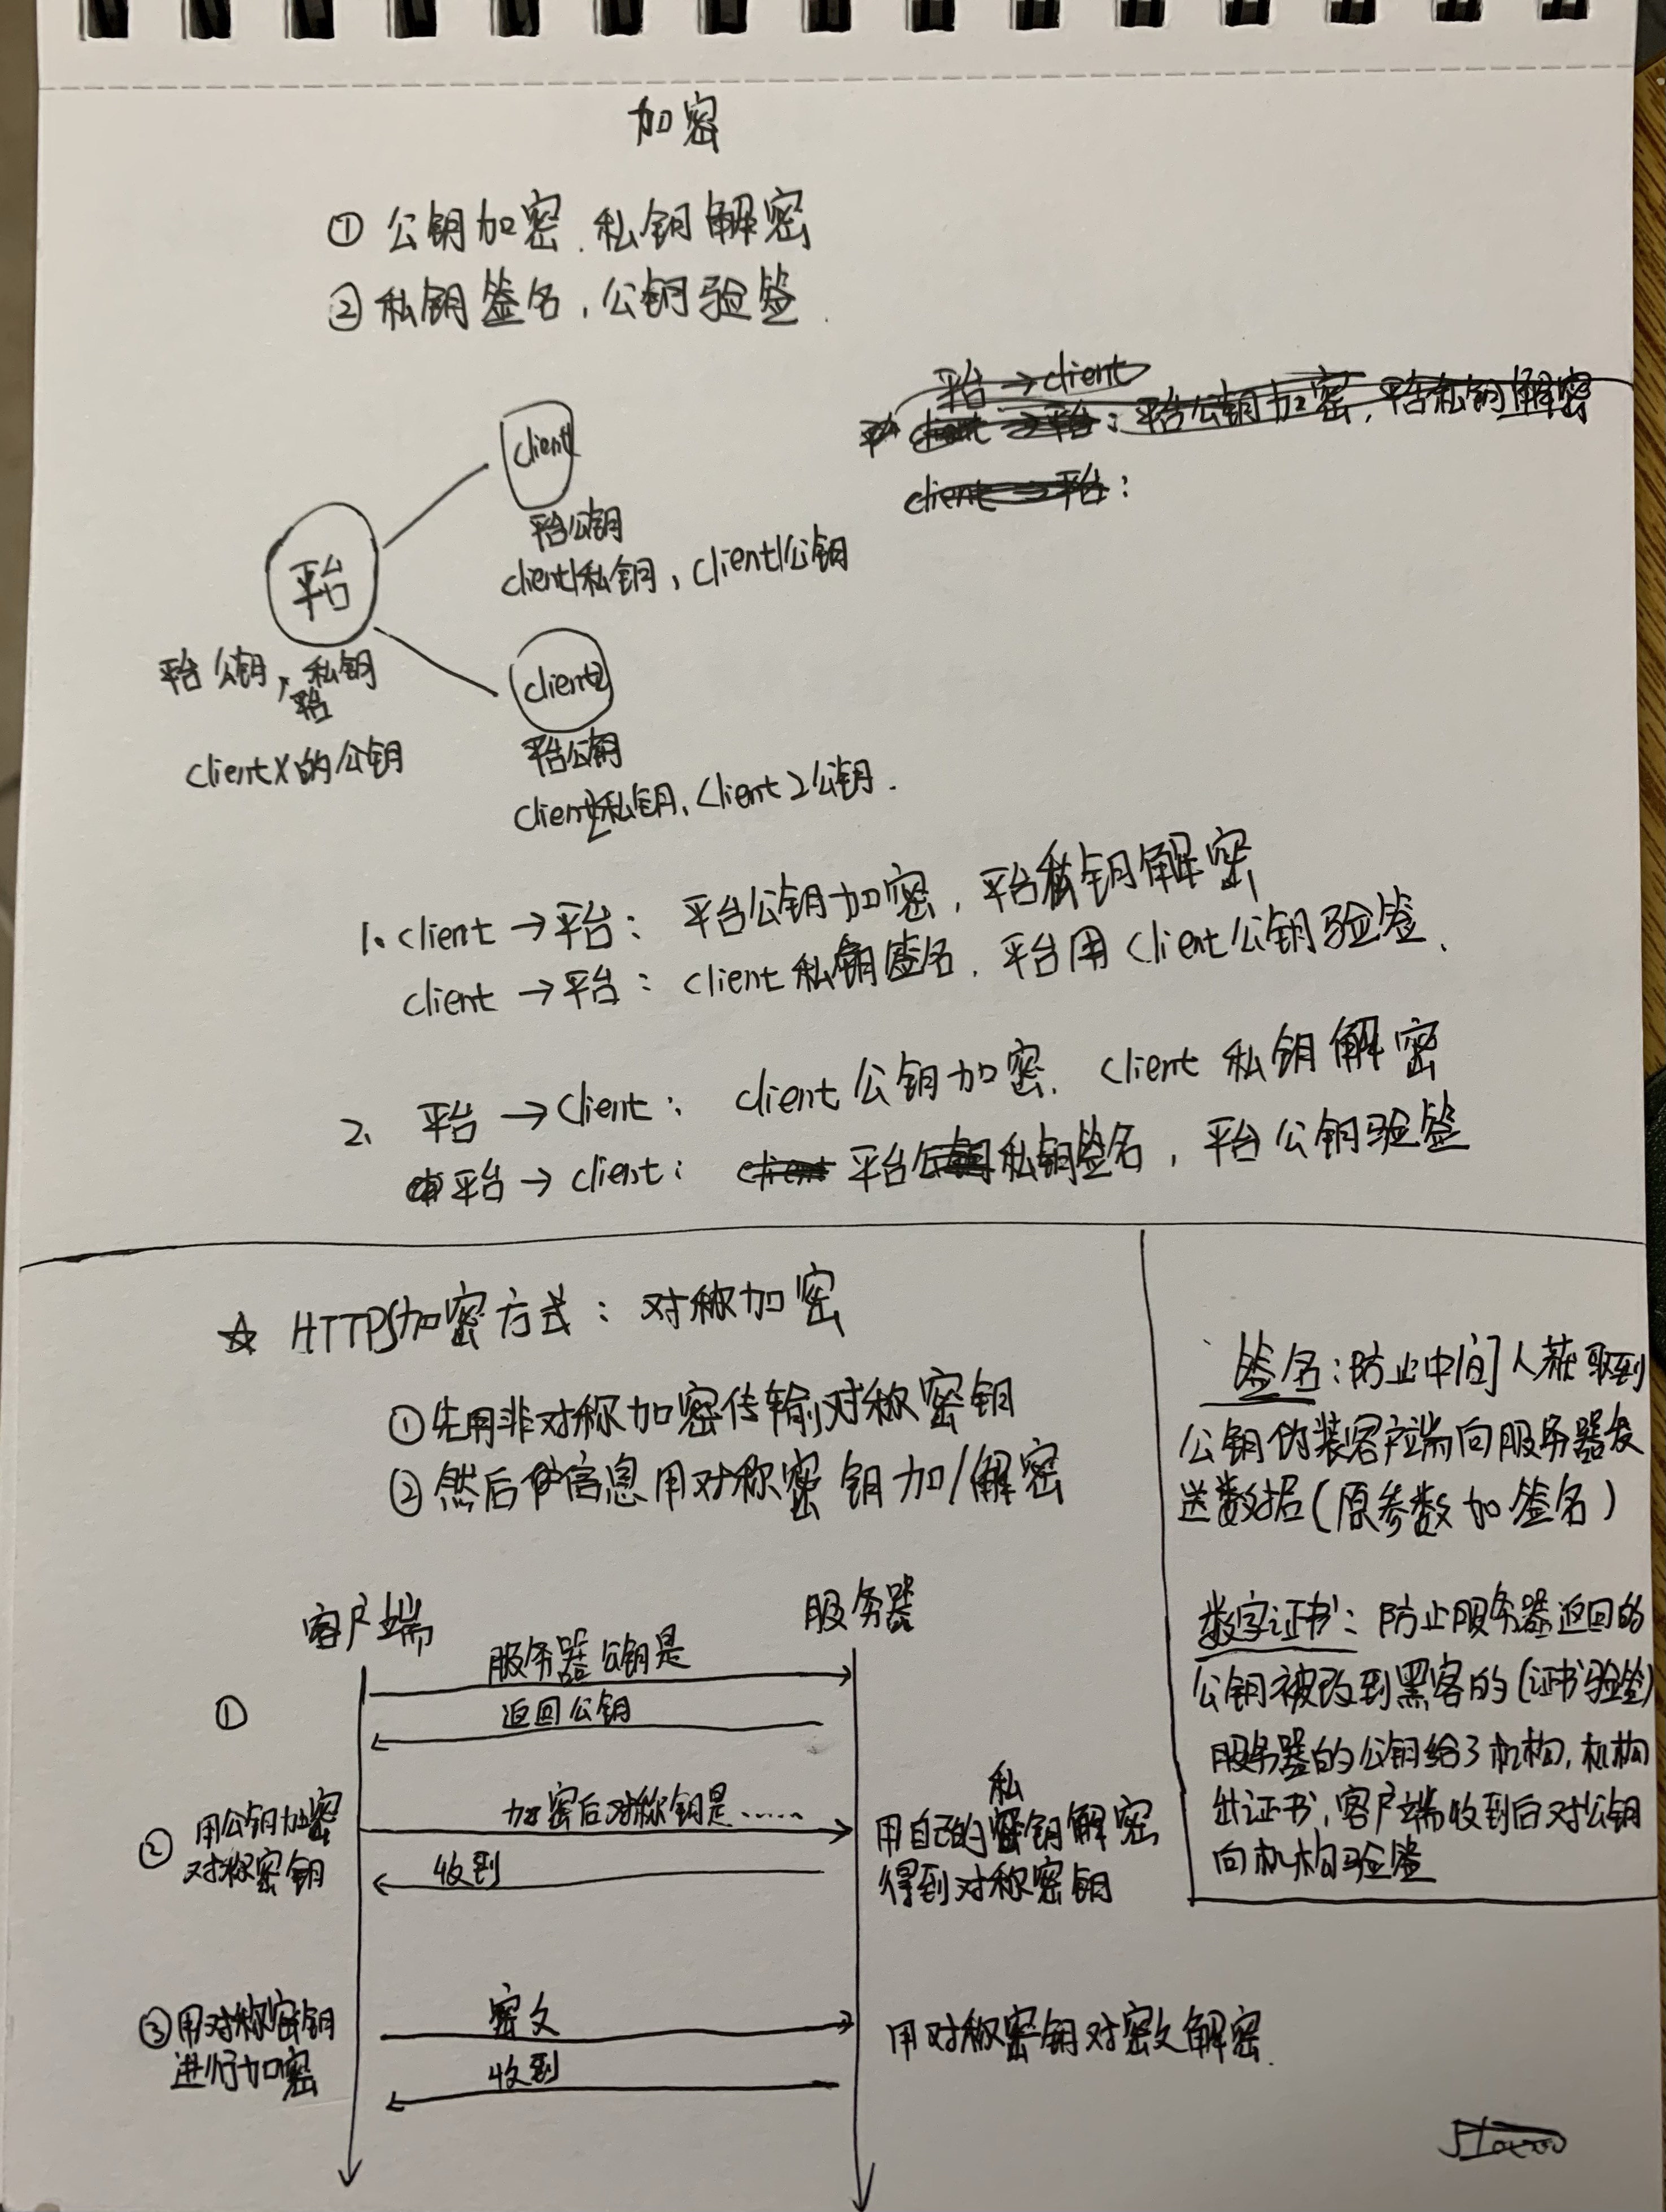 加密
① 公钥加密、私钥解密
② 私钥签名，公钥验签.
平台→client
client→平台：平台公钥加密，平台私钥解密
client→平台：
client1
平台公钥
client1私钥，client1公钥
平台
平台公钥，平台私钥
clientX的公钥
client2
平台公钥
client2私钥、client2公钥.
1. client→平台：平台公钥加密，平台私钥解密
client→平台：client私钥签名，平台用client公钥验签、
2、平台→client：client公钥加密、client私钥解密
平台→client：client 平台公钥私钥签名，平台公钥验签
☆ HTTPS加密方式：对称加密
①先用非对称加密传输对称密钥
②然后信息用对称密钥加/解密
客户端
服务器
服务器公钥是
①
返回公钥
② 用公钥加密
对称密钥
加密后对称钥是……
收到
用自己的私钥解密
得到对称密钥
③用对称密钥
进行加密
密文
收到
用对称密钥对密文解密.
签名：防止中间人获取到
公钥伪装客户端向服务器发
送数据(原参数加签名)
数字证书：防止服务器返回的
公钥被改到黑客的(证书验签)
服务器的公钥给了机构，机构
出证书，客户端收到后对公钥
向机构验签